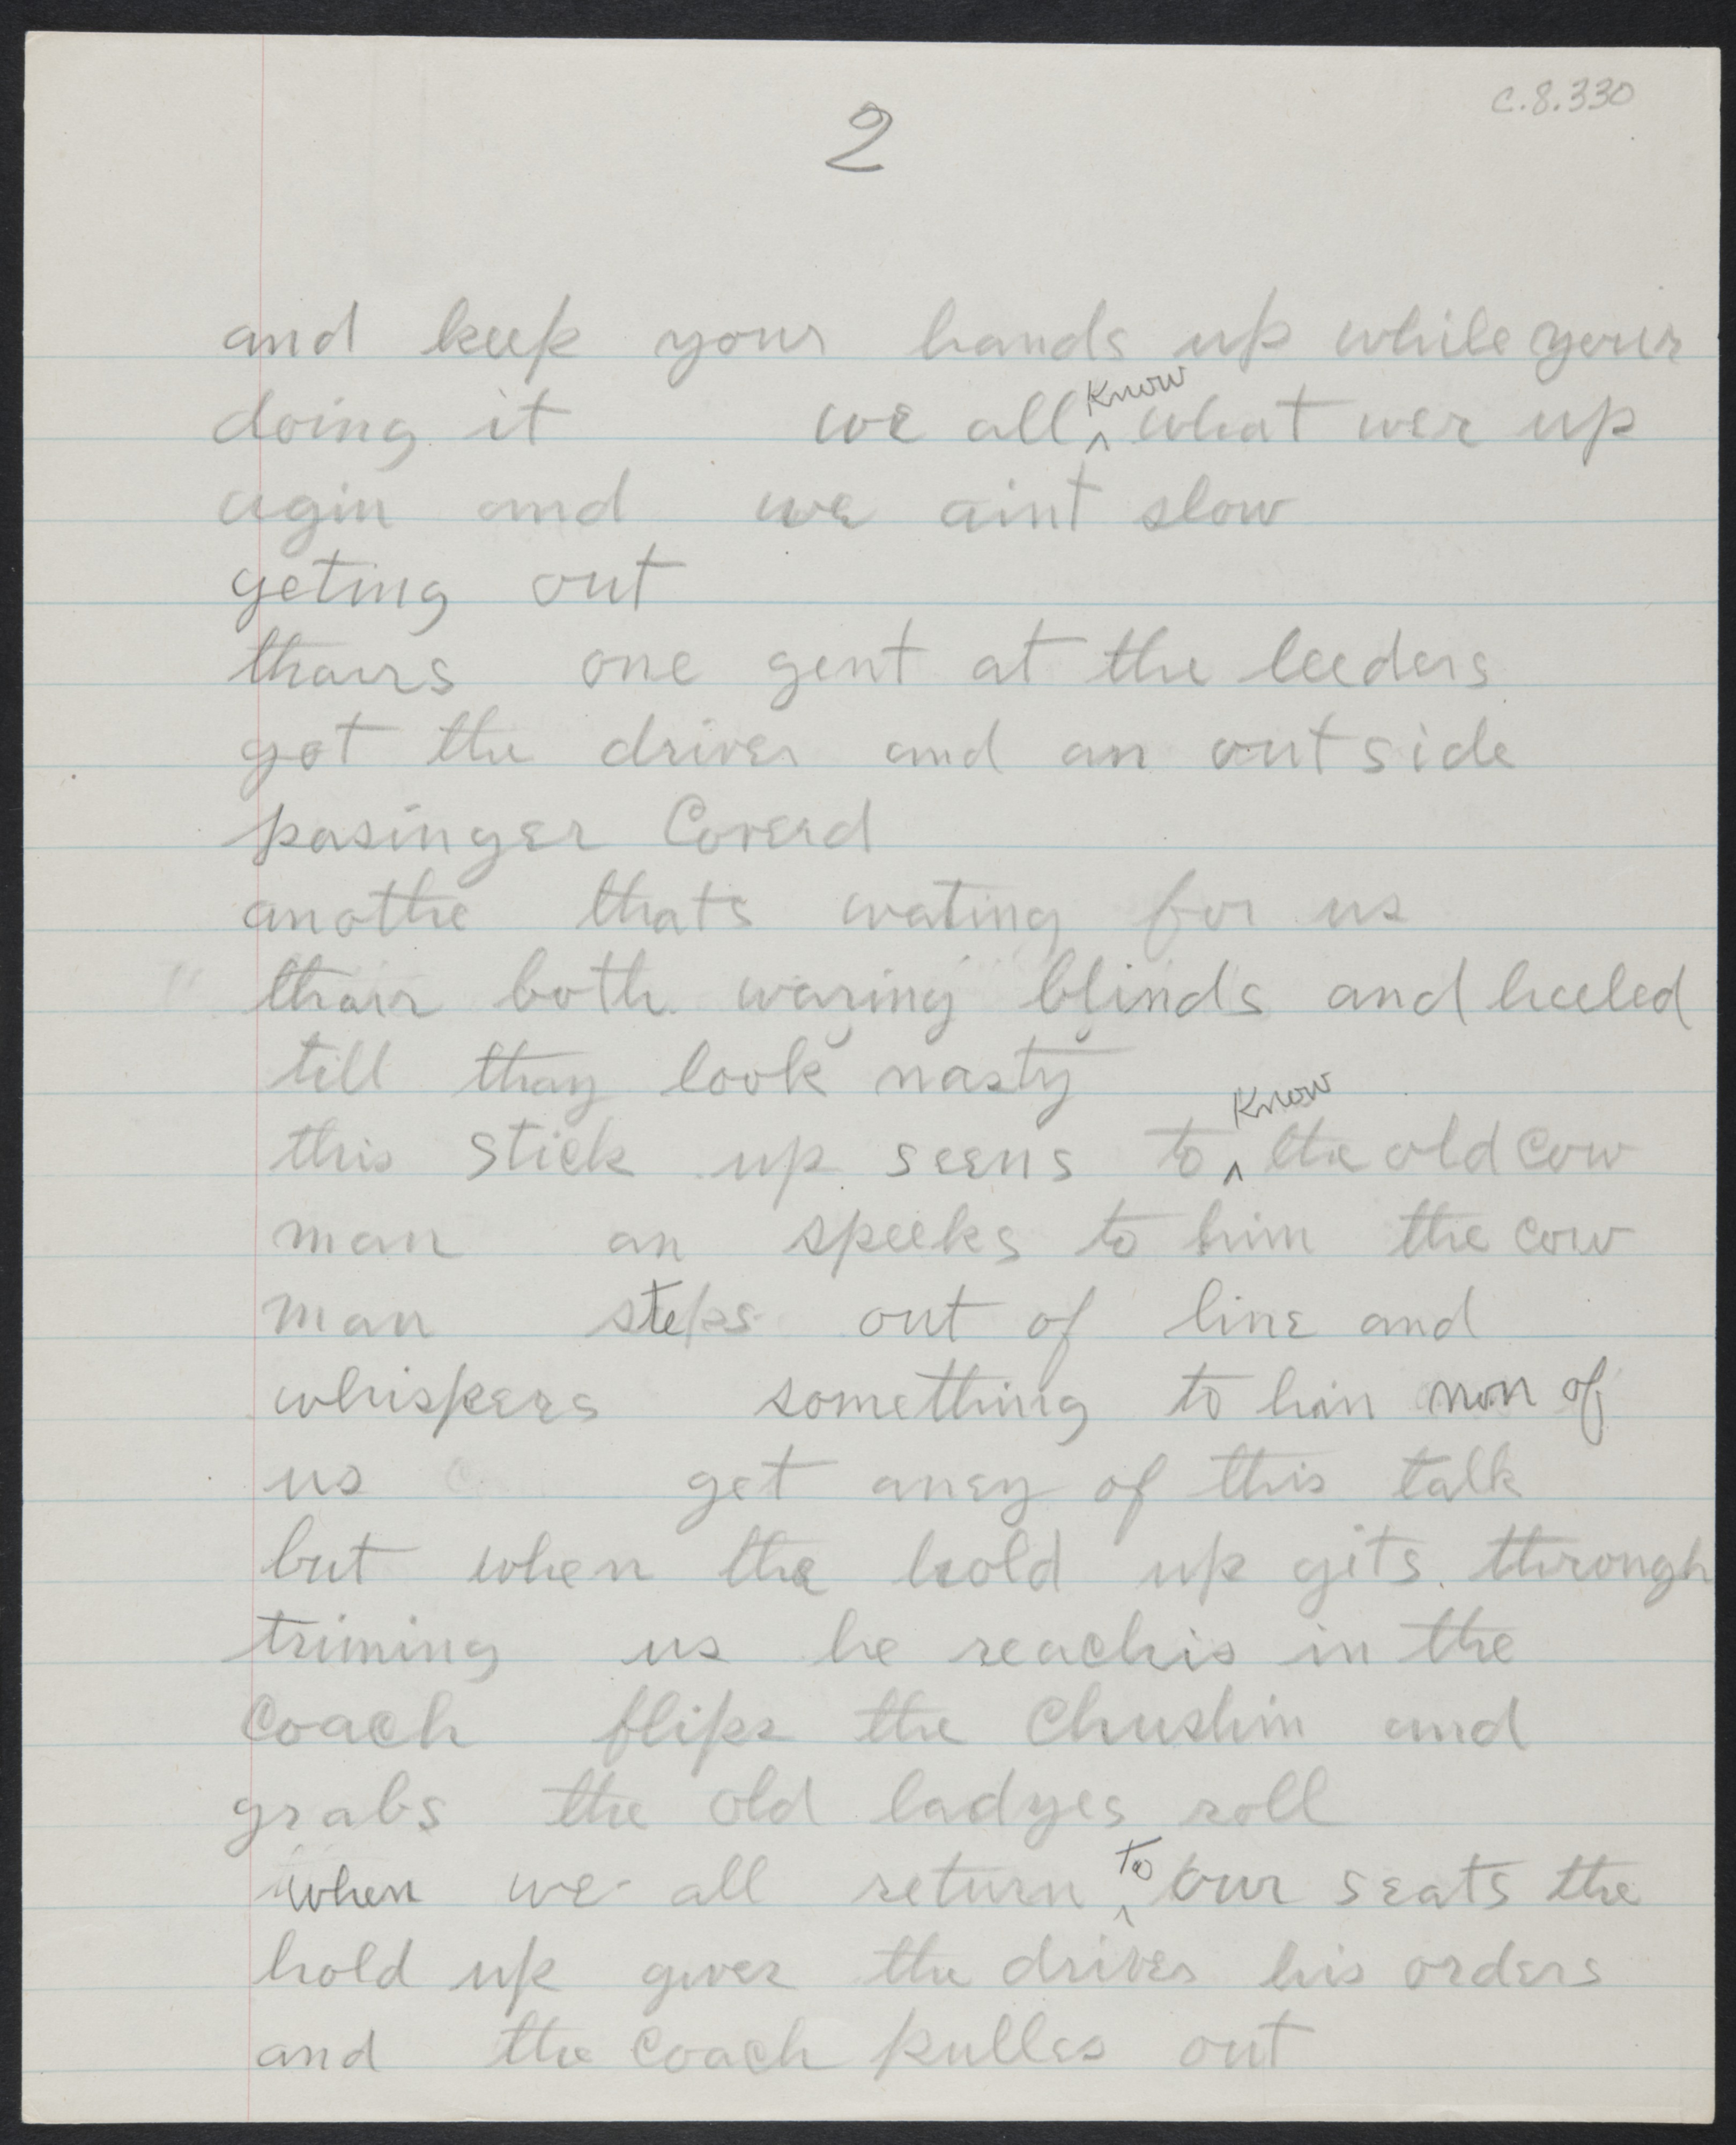 C.8.330
2
and keep your hands up while your
doing it we all ^know what wer up
agin and we aint slow
geting out
thairs one gent at the leeders
got the driver and an outside
pasinger Coverd
anothe thats wating for us
thair both waring blinds and heeled
till thay look nasty
this stick up seens to ^Know the old cow
man an speeks to him the cow
man steps out of line and
whispers something to him non of
us get aney of this talk
but when the hold up gits through
triming us he reachis in the
Coach flips the Chushin and
grabs the old ladyes roll
when we all return ^to our seats the
hold up gives the driver his orders
and the coach pulles out